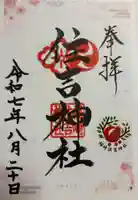 奉拝
住吉神社
令和七年八月二十日